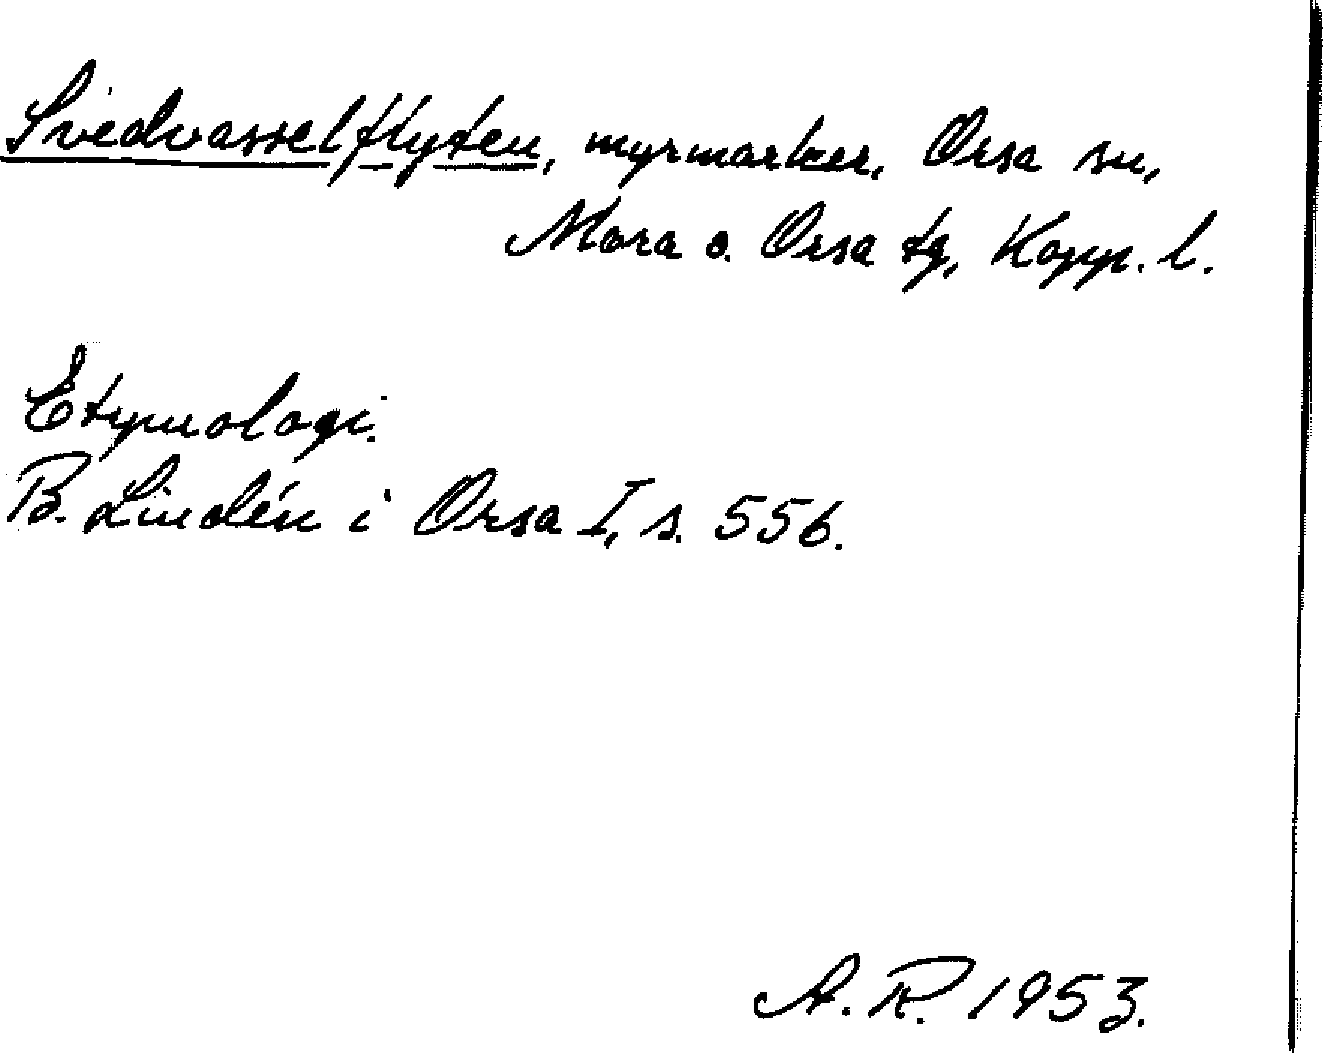 Svedvasselflyten, myrmarker, Orsa sn,
Mora o. Orsa tg, Kopp. l.
Etymologi.
B. Lindén i Orsa I, s. 556.
A. R. 1953.